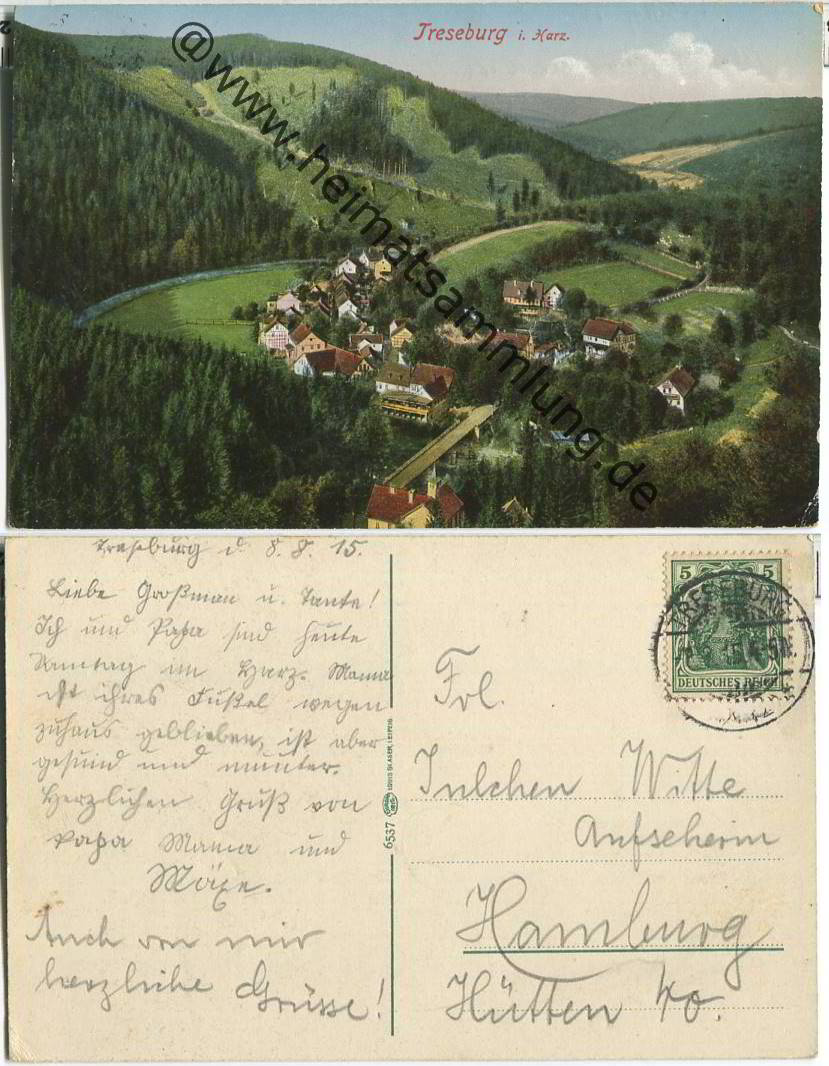 Treseburg i. Harz.
@www.heimatsammlung.de
Treseburg d 8.8.15.
Liebe Großman u. Tante!
Ich und Papa sind heute
Sonntag im Harz. Mama
ist ihres Fußel wegen
zuhaus geblieben, ist aber
gesund und munter.
Herzlichen Gruß von
Papa Mama und
Mäxe.
Auch von mir
herzliche Grüsse!
6537
LOUIS GLASER, LEIPZIG
5 5
DEUTSCHES REICH
TRESEBURG
Frl.
Julchen Witte
Aufseherin
Hamburg
Hütten 40.